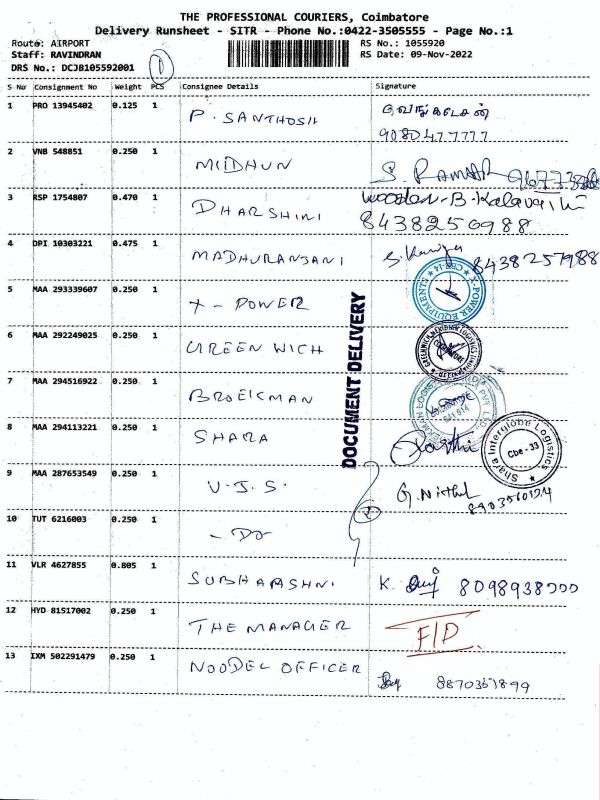 THE PROFESSIONAL COURIERS, Coimbatore
Delivery Runsheet - SITR - Phone No.:0422-3505555 - Page No.:1
Route: AIRPORT
RS No.: 1055920
Staff: RAVINDRAN
RS Date: 09-Nov-2022
DRS No.: DCJB105592001
1
S No Consignment No Weight PCS Consignee Details Signature
1 PRO 13945402 0.125 1 P. SANTHOSH
2 VNB 548851 0.250 1 MIDHUN
3 RSP 1754807 0.470 1 DHARSHINI
8438250988
4 DPI 10303221 0.475 1 MADHURANJANI 8438257988
5 MAA 293339607 0.250 1 X-POWER
X-POWER EQUIPMENT CBE-14
6 MAA 292249025 0.250 1 GREEN WICH
7 MAA 294516922 0.250 1 BROEKMAN
8 MAA 294113221 0.250 1 SHARA
Shara Interglobe Logistics
Cbe - 33
DOCUMENT DELIVERY
9 MAA 287653549 0.250 1 V.J.S. G. Nithul
10 TUT 6216003 0.250 1 - DO -
11 VLR 4627855 0.805 1 SUBHARSHNI K.
12 HYD 81517002 0.250 1 THE MANAGER F/D
13 IXM 502291479 0.250 1 NOODEL OFFICER